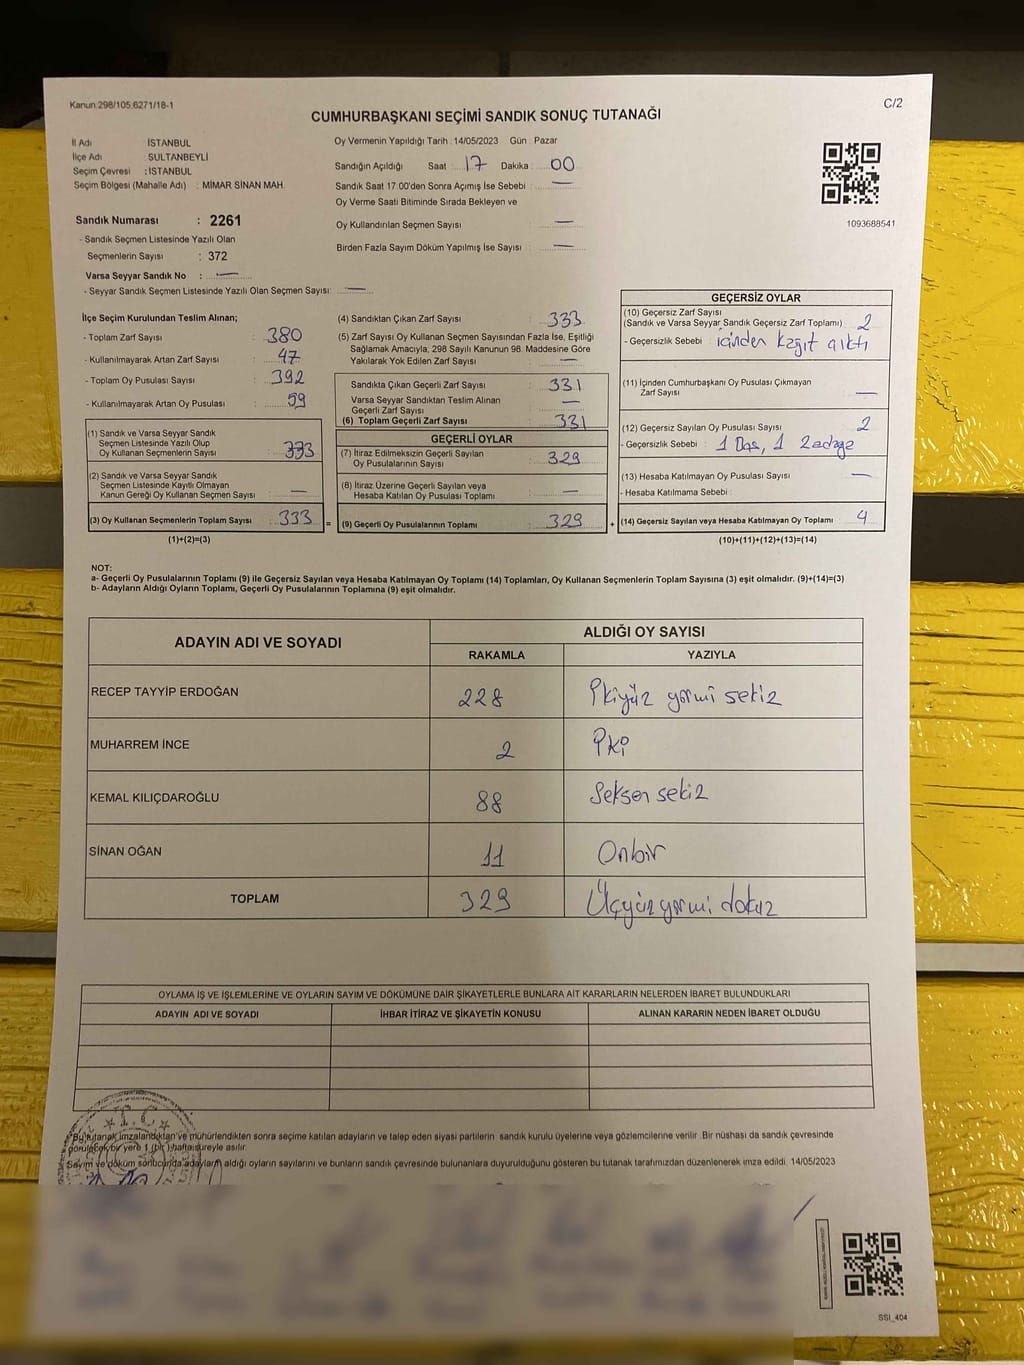 Kanun:298/105,6271/18-1
C/2
CUMHURBAŞKANI SEÇİMİ SANDIK SONUÇ TUTANAĞI
İl Adı : İSTANBUL
İlçe Adı : SULTANBEYLİ
Seçim Çevresi : İSTANBUL
Seçim Bölgesi (Mahalle Adı) : MİMAR SİNAN MAH.
Sandık Numarası : 2261
- Sandık Seçmen Listesinde Yazılı Olan
Seçmenlerin Sayısı : 372
Varsa Seyyar Sandık No : —
- Seyyar Sandık Seçmen Listesinde Yazılı Olan Seçmen Sayısı: —
Oy Vermenin Yapıldığı Tarih : 14/05/2023 Gün : Pazar
Sandığın Açıldığı Saat : 17 Dakika : 00
Sandık Saat 17:00'den Sonra Açımış İse Sebebi : —
Oy Verme Saati Bitiminde Sırada Bekleyen ve
Oy Kullandırılan Seçmen Sayısı : —
Birden Fazla Sayım Döküm Yapılmış İse Sayısı : —
1093688541
İlçe Seçim Kurulundan Teslim Alınan;
- Toplam Zarf Sayısı : 380
- Kullanılmayarak Artan Zarf Sayısı : 47
- Toplam Oy Pusulası Sayısı : 392
- Kullanılmayarak Artan Oy Pusulası : 59
(1) Sandık ve Varsa Seyyar Sandık
Seçmen Listesinde Yazılı Olup
Oy Kullanan Seçmenlerin Sayısı : 333
(2) Sandık ve Varsa Seyyar Sandık
Seçmen Listesinde Kayıtlı Olmayan
Kanun Gereği Oy Kullanan Seçmen Sayısı : —
(3) Oy Kullanan Seçmenlerin Toplam Sayısı : 333
(1)+(2)=(3)
(4) Sandıktan Çıkan Zarf Sayısı : 333
(5) Zarf Sayısı Oy Kullanan Seçmen Sayısından Fazla İse, Eşitliği
Sağlamak Amacıyla, 298 Sayılı Kanunun 98. Maddesine Göre
Yakılarak Yok Edilen Zarf Sayısı : —
Sandıkta Çıkan Geçerli Zarf Sayısı : 331
Varsa Seyyar Sandıktan Teslim Alınan
Geçerli Zarf Sayısı : —
(6) Toplam Geçerli Zarf Sayısı : 331
GEÇERLİ OYLAR
(7) İtiraz Edilmeksizin Geçerli Sayılan
Oy Pusulalarının Sayısı : 329
(8) İtiraz Üzerine Geçerli Sayılan veya
Hesaba Katılan Oy Pusulası Toplamı : —
= (9) Geçerli Oy Pusulalarının Toplamı : 329 +
GEÇERSİZ OYLAR
(10) Geçersiz Zarf Sayısı
(Sandık ve Varsa Seyyar Sandık Geçersiz Zarf Toplamı) : 2
- Geçersizlik Sebebi : içinden kağıt çıktı
(11) İçinden Cumhurbaşkanı Oy Pusulası Çıkmayan
Zarf Sayısı : —
(12) Geçersiz Sayılan Oy Pusulası Sayısı : 2
- Geçersizlik Sebebi : 1 Boş, 1
(13) Hesaba Katılmayan Oy Pusulası Sayısı : —
- Hesaba Katılmama Sebebi :
(14) Geçersiz Sayılan veya Hesaba Katılmayan Oy Toplamı : 4
(10)+(11)+(12)+(13)=(14)
NOT:
a- Geçerli Oy Pusulalarının Toplamı (9) ile Geçersiz Sayılan veya Hesaba Katılmayan Oy Toplamı (14) Toplamları, Oy Kullanan Seçmenlerin Toplam Sayısına (3) eşit olmalıdır. (9)+(14)=(3)
b- Adayların Aldığı Oyların Toplamı, Geçerli Oy Pusulalarının Toplamına (9) eşit olmalıdır.
ADAYIN ADI VE SOYADI
ALDIĞI OY SAYISI
RAKAMLA YAZIYLA
RECEP TAYYİP ERDOĞAN 228 İkiyüz yirmi sekiz
MUHARREM İNCE 2 İki
KEMAL KILIÇDAROĞLU 88 Seksen sekiz
SİNAN OĞAN 11 Onbir
TOPLAM 329 Üçyüz yirmi dokuz
OYLAMA İŞ VE İŞLEMLERİNE VE OYLARIN SAYIM VE DÖKÜMÜNE DAİR ŞİKAYETLERLE BUNLARA AİT KARARLARIN NELERDEN İBARET BULUNDUKLARI
ADAYIN ADI VE SOYADI İHBAR İTİRAZ VE ŞİKAYETİN KONUSU ALINAN KARARIN NEDEN İBARET OLDUĞU
T.C.
Bu tutanak imzalandıktan ve mühürlendikten sonra seçime katılan adayların ve talep eden siyasi partilerin sandık kurulu üyelerine veya gözlemcilerine verilir. Bir nüshası da sandık çevresinde
görülecek bir yere 1 (bir) hafta süreyle asılır.
Sayım ve döküm sonucunda adayların aldığı oyların sayılarını ve bunların sandık çevresinde bulunanlara duyurulduğunu gösteren bu tutanak tarafımızdan düzenlenerek imza edildi. 14/05/2023
SSI_404